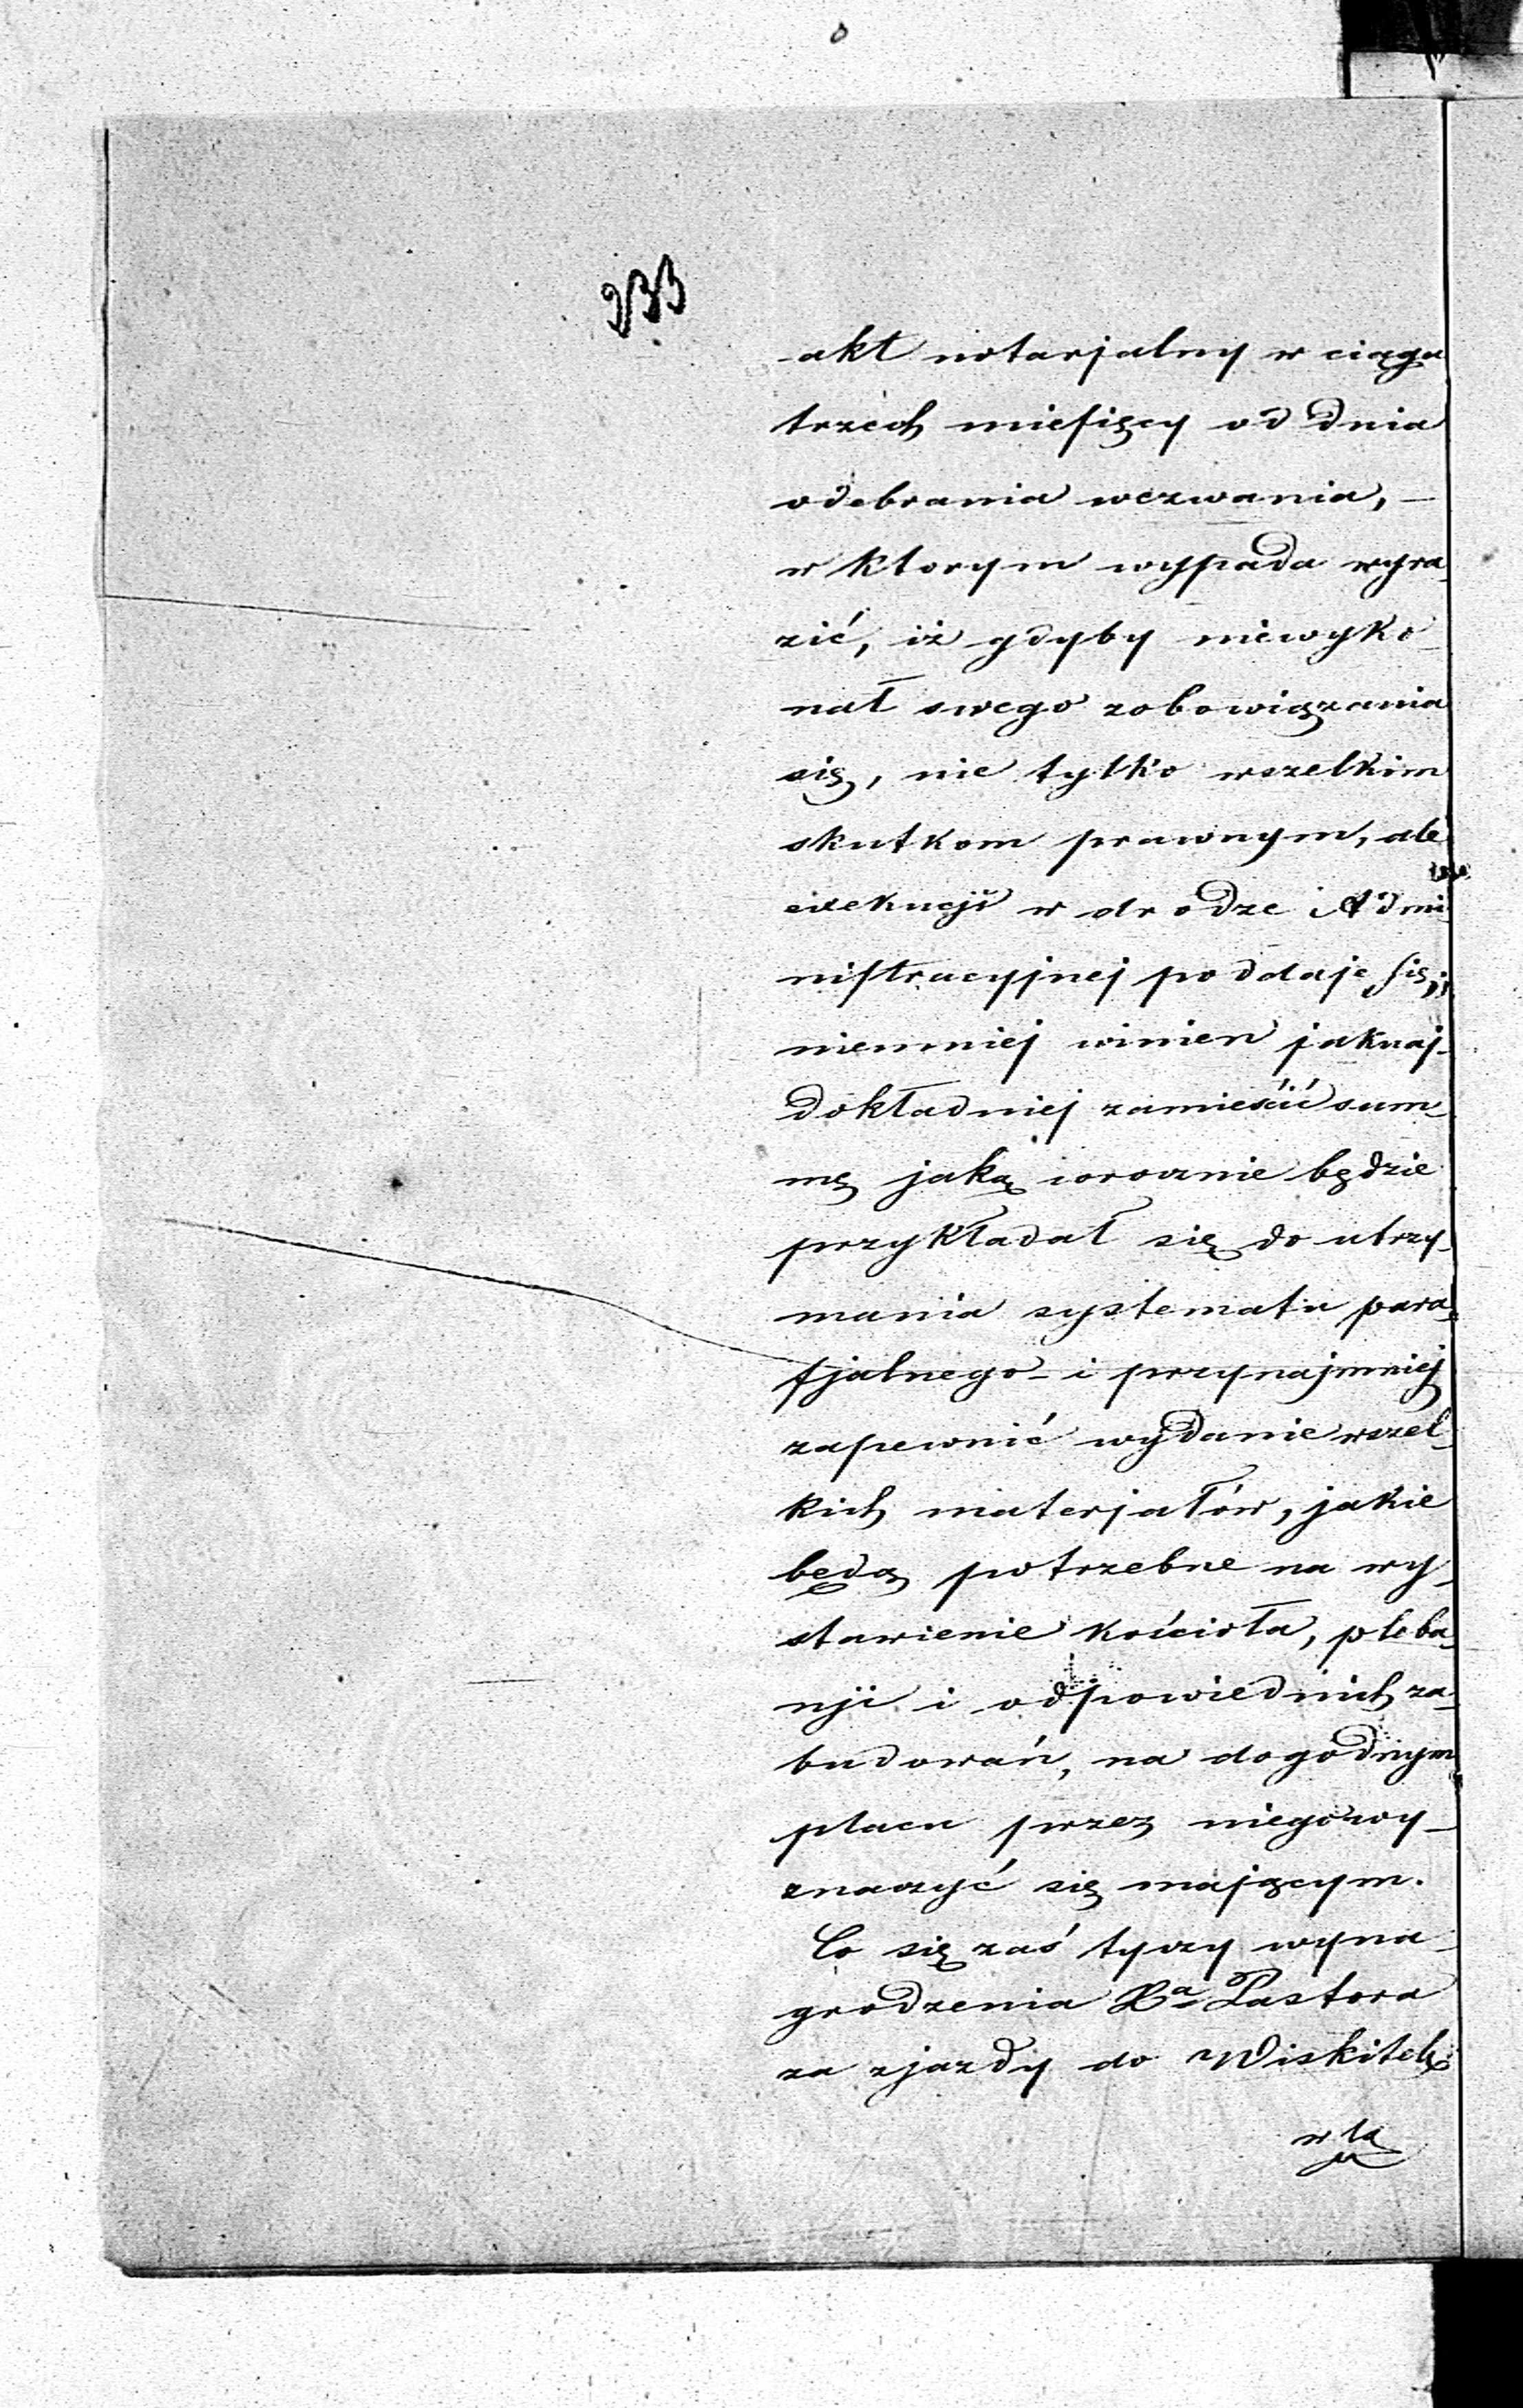 233
akt notarjalny w ciągu
trzech miesięcy od dnia
odebrania wezwania, —
w ktorym wypada wyra-
zić, iż gdyby niewyko-
nał swego zobowiązania
się, nie tylko wszelkim
skutkom prawnym, ale
exekucji w drodze i Admi-
nistracyjnej poddaje się;
niemniej winien jaknaj-
dokładniej zamieścić sum-
mę jaką corocznie będzie
przykładał się do utrzy-
mania systematu para-
fjalnego – i przynajmniej
zapewnić wydanie wszel-
kich materjałów, jakie
będą potrzebne na wy-
stawienie kościoła, pleba-
nji i odpowiednich za-
budowań, na dogodnym
placu przez niego wy-
znaczyć się mającym.
Co się zaś tyczy wyna-
grodzenia Xa Pastora
za zjazdy do Wiskitek